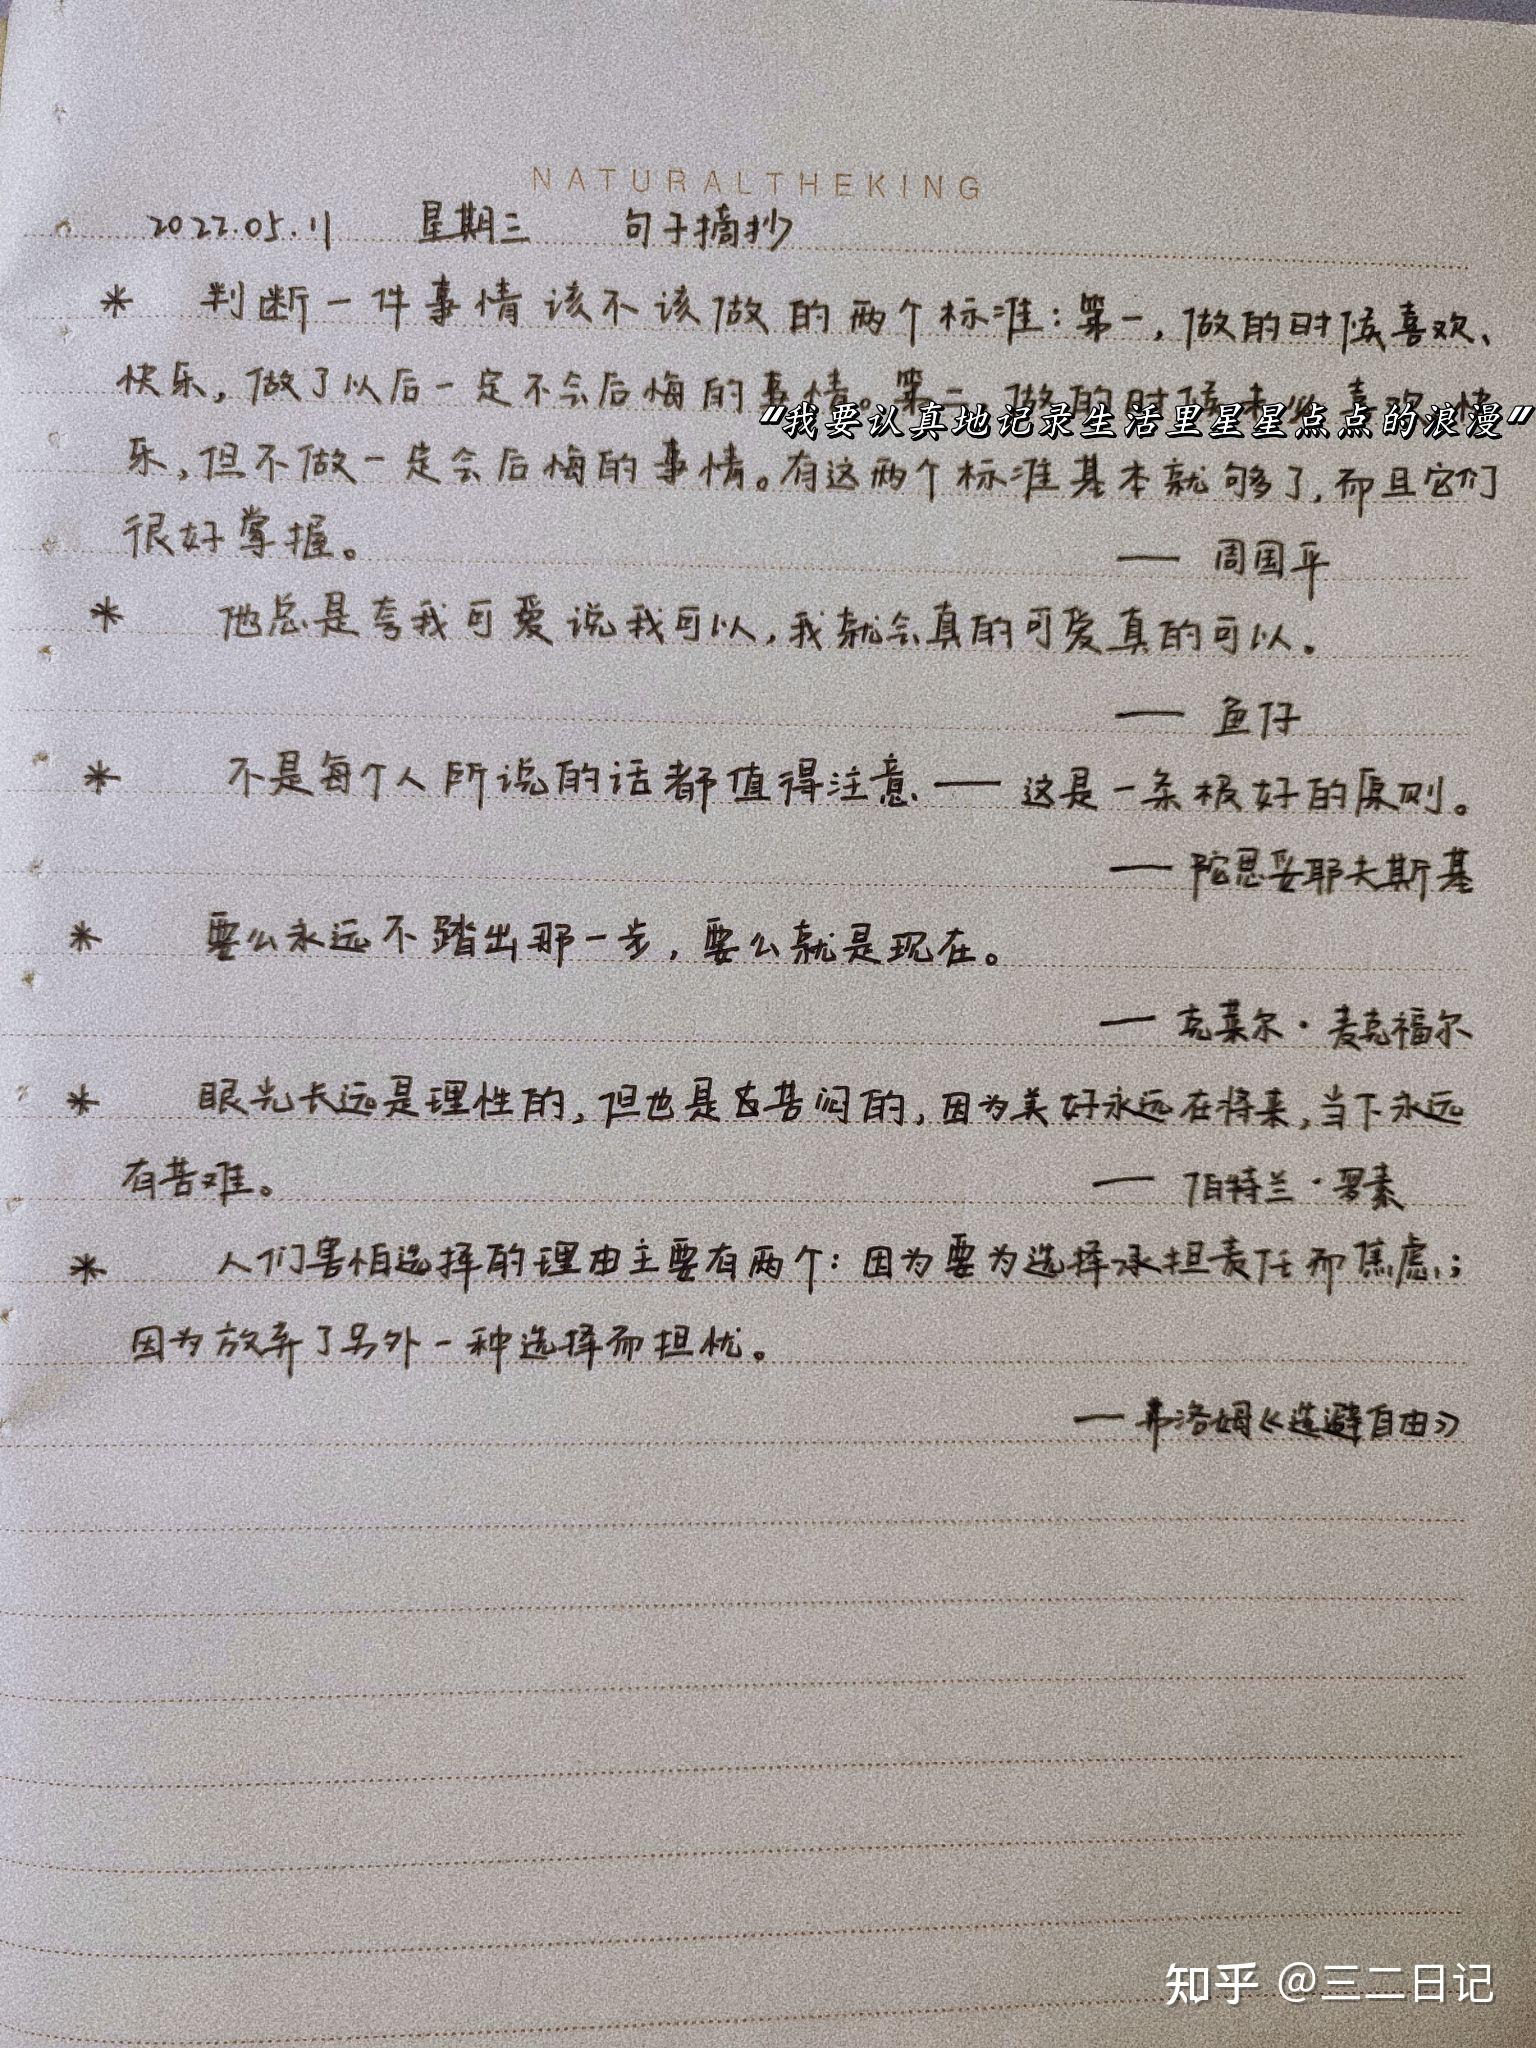 NATURALTHEKING
2022.05.11 星期三 句子摘抄
* 判断一件事情该不该做的两个标准：第一，做的时候喜欢、
快乐，做了以后一定不会后悔的事情。第二，做的时候未必喜欢、快
"我要认真地记录生活里星星点点的浪漫"
乐，但不做一定会后悔的事情。有这两个标准基本就够了，而且它们
很好掌握。
—— 周国平
* 他总是夸我可爱说我可以，我就会真的可爱真的可以。
—— 鱼仔
* 不是每个人所说的话都值得注意、—— 这是一条极好的原则。
—— 陀思妥耶夫斯基
* 要么永远不踏出那一步，要么就是现在。
—— 克莱尔·麦克福尔
* 眼光长远是理性的，但也是苦闷的，因为美好永远在将来，当下永远
有苦难。
—— 伯特兰·罗素
* 人们害怕选择的理由主要有两个：因为要为选择承担责任而焦虑；
因为放弃了另外一种选择而担忧。
—— 弗洛姆《逃避自由》
知乎 @三二日记